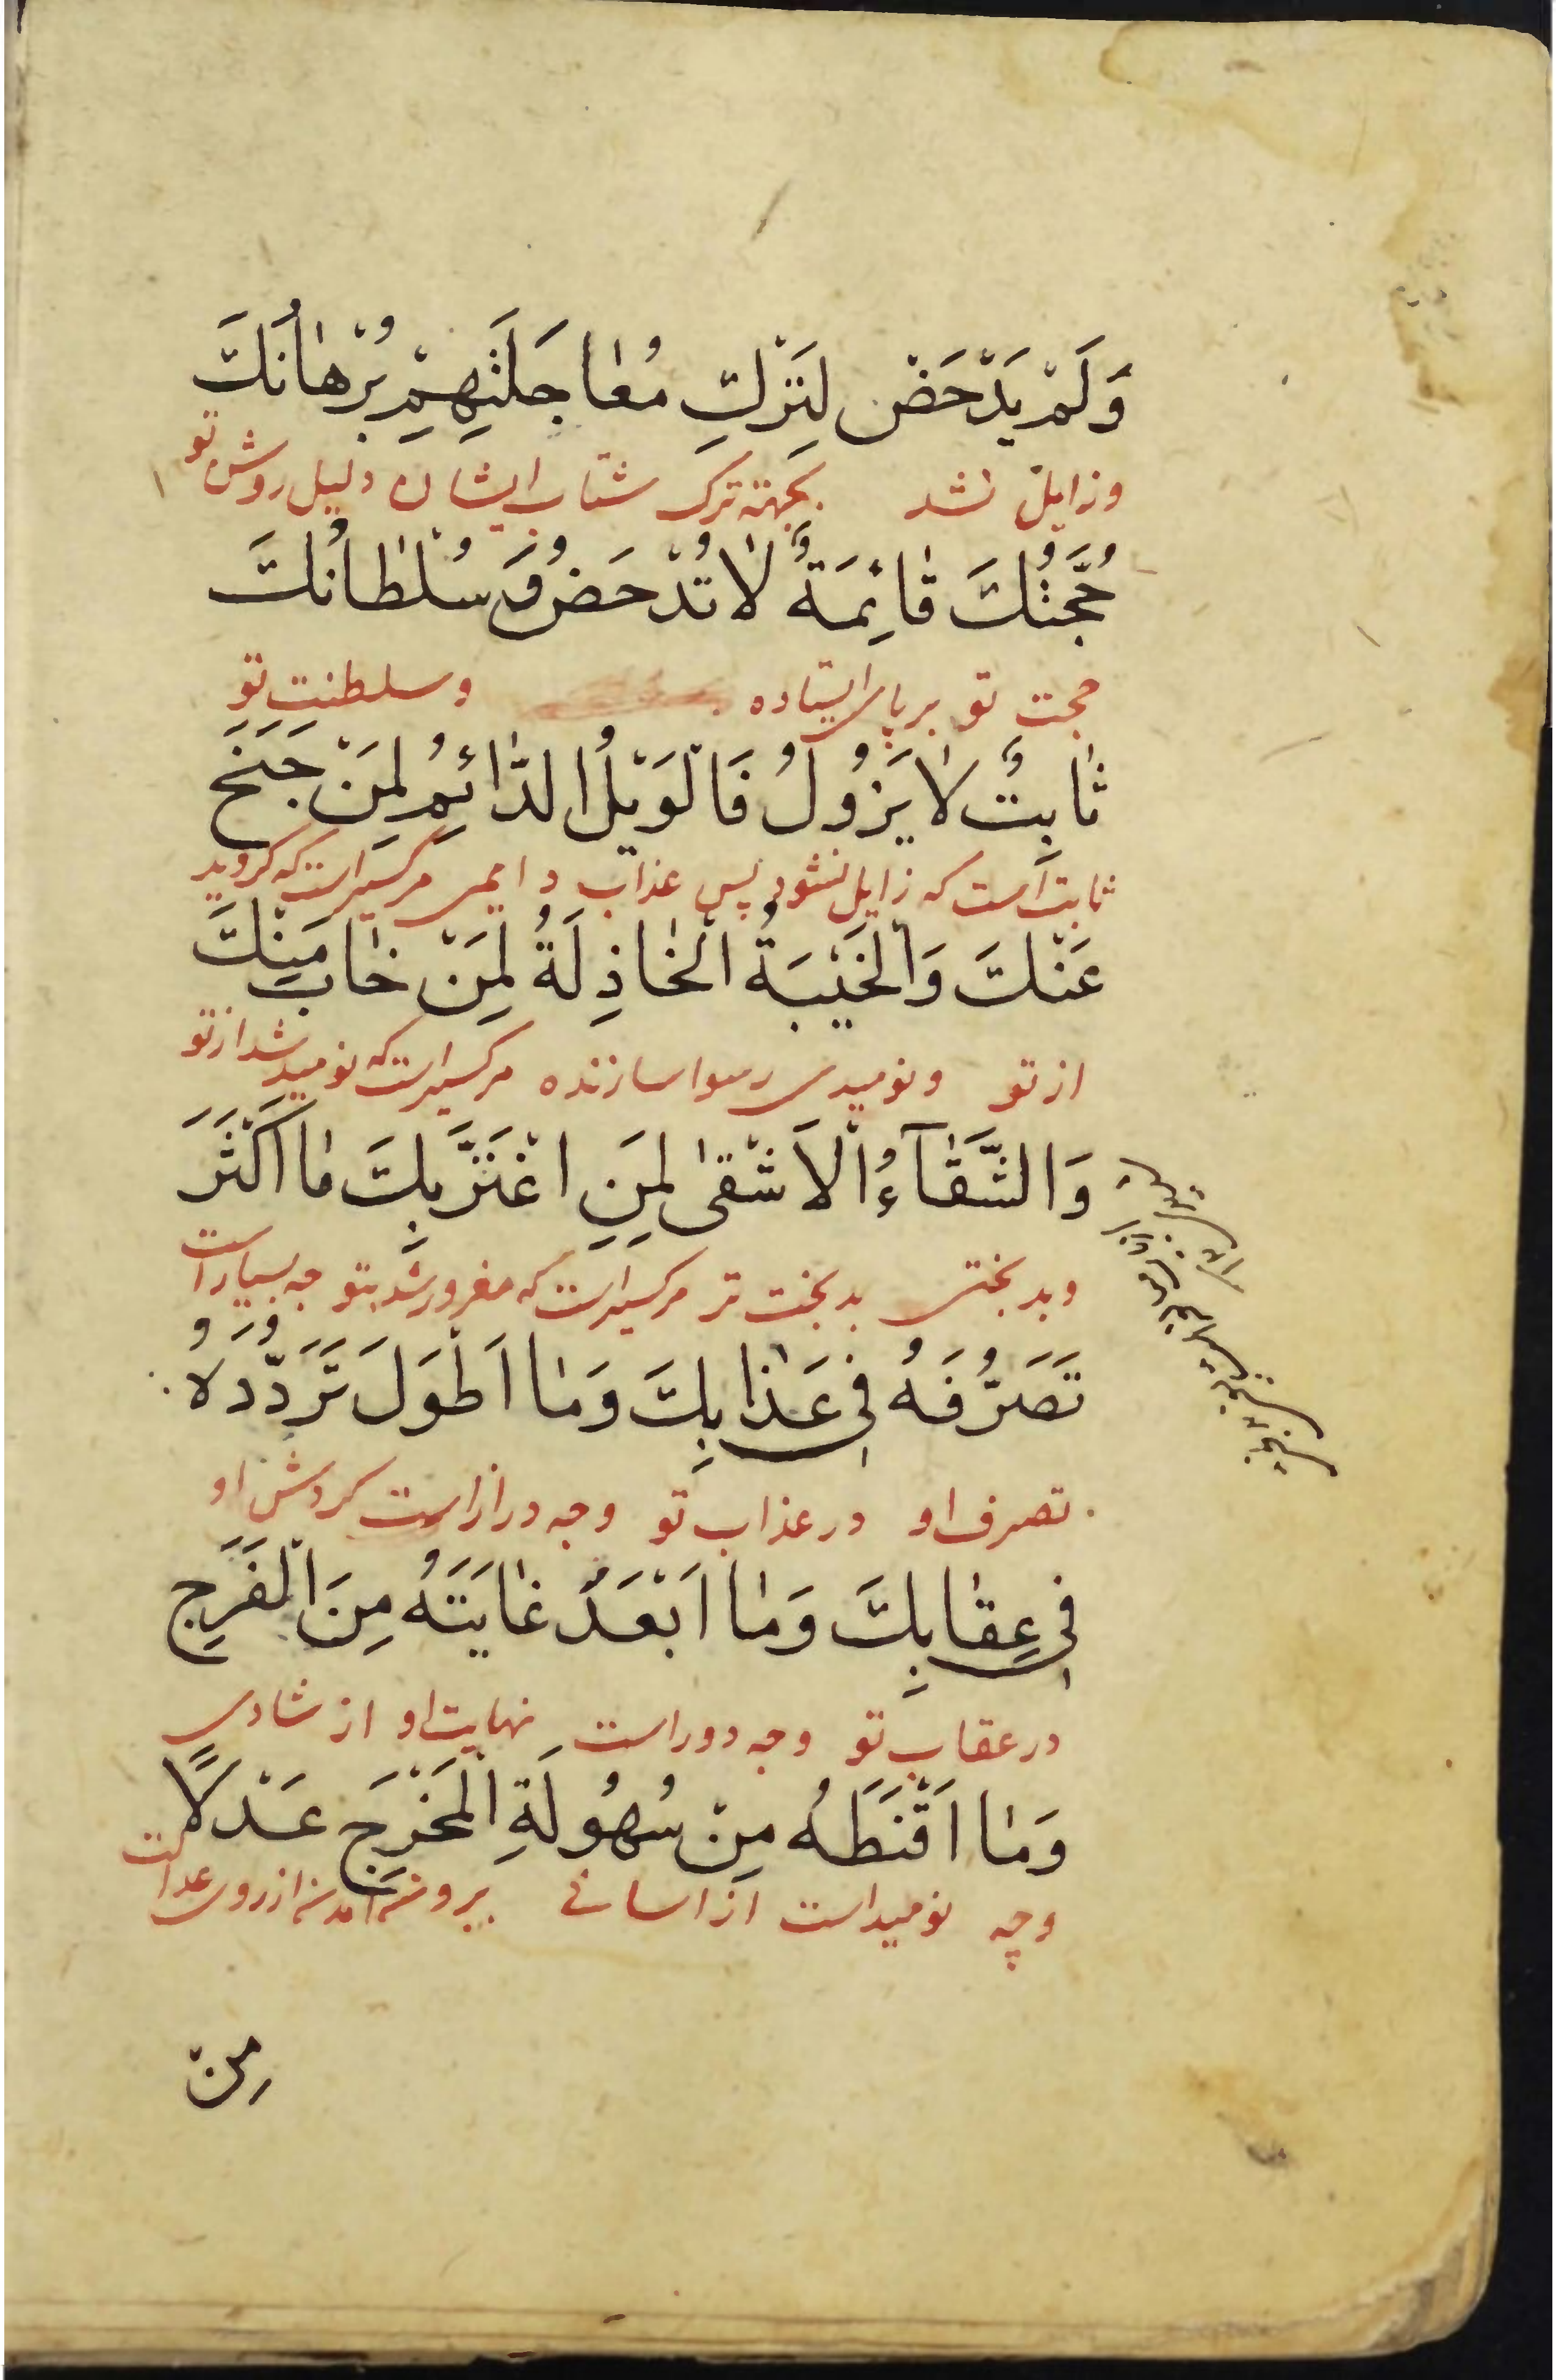 وَلَمْ يَدْحَضْ لِتَرْكِ مُعٰاجَلَتِهِمْ بُرْهٰانُكَ
وزایل نشد بجهته ترک شتاب ایشان دلیل روش تو
حُجَّتُكَ قٰائِمَةٌ لٰا تُدْحَضُ وَ سُلْطٰانُكَ
حجت تو بر پای ایستاده وسلطنت تو
ثٰابِتٌ لٰا يَزُولُ فَالْوَيْلُ الدّٰائِمُ لِمَنْ جَنَحَ
ثابت است که زایل نشود پس عذاب دایمی مرکسیراست که کروید
عَنْكَ وَالْخَيْبَةُ الْخٰاذِلَةُ لِمَنْ خٰابَ مِنْكَ
از تو ونومیدی رسوا سازنده مرکسیراست که نومید شد از تو
وَالشَّقٰآءُ الْاَشْقىٰ لِمَنِ اغْتَرَّ بِكَ مٰا اَكْثَرَ
وبدبختی بدبخت تر مرکسیراست که مغرور شد بتو چه بسیار است
تَصَرُّفَهُ فِي عَذٰابِكَ وَمٰا اَطْوَلَ تَرَدُّدَهُ
تصرف او در عذاب تو وچه دراز است کردش او
فِي عِقٰابِكَ وَمٰا اَبْعَدَ غٰايَتَهُ مِنَ الْفَرَجِ
در عقاب تو وچه دور است نهایت او از شادی
وَمٰا اَقْنَطَهُ مِنْ سُهُولَةِ الْمَخْرَجِ عَدْلًا
وچه نومید است از اسانی بیرون امدن از روی عدالت
مِنْ